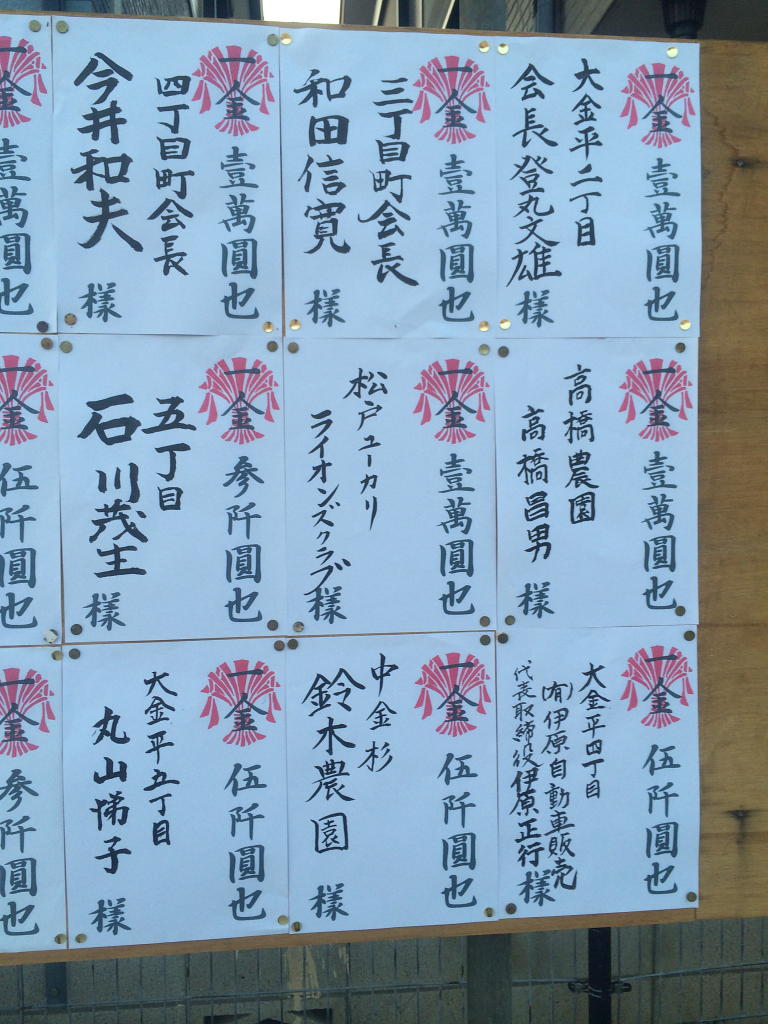 一金 壹萬圓也
大金平二丁目
会長 登丸文雄 様
一金 壹萬圓也
三丁目町会長
和田信寛 様
一金 壹萬圓也
四丁目町会長
今井和夫 様
一金 壹萬圓也
一金 壹萬圓也
高橋農園
高橋昌男 様
一金 壹萬圓也
松戸ユーカリ
ライオンズクラブ 様
一金 参阡圓也
五丁目
石川茂生 様
一金 伍阡圓也
一金 伍阡圓也
大金平四丁目
(有)伊原自動車販売
代表取締役 伊原正行 様
一金 伍阡圓也
中金杉
鈴木農園 様
一金 伍阡圓也
大金平五丁目
丸山悌子 様
一金 参阡圓也